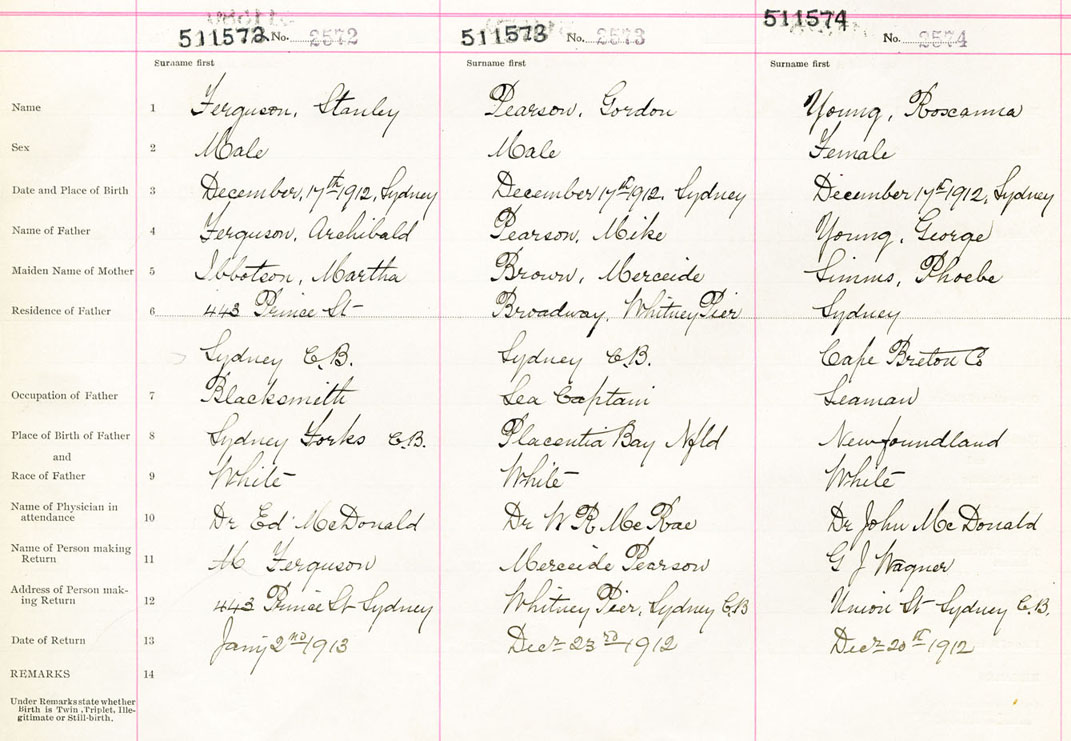 511572 No. 2572 511573 No. 2573 511574 No. 2574
Surname first Surname first Surname first
Name 1 Ferguson, Stanley Pearson, Gordon Young, Roseanna
Sex 2 Male Male Female
Date and Place of Birth 3 December, 17th 1912, Sydney December 17th 1912, Sydney December 17th 1912, Sydney
Name of Father 4 Ferguson, Archibald Pearson, Mike Young, George
Maiden Name of Mother 5 Ibbotson, Martha Brown, Merceide Simms, Phoebe
Residence of Father 6 443 Prince St Broadway, Whitney Pier Sydney
Sydney C.B. Sydney C.B. Cape Breton Co
Occupation of Father 7 Blacksmith Sea Captain Seaman
Place of Birth of Father 8 Sydney Forks C.B. Placentia Bay Nfld Newfoundland
and
Race of Father 9 White White White
Name of Physician in
attendance 10 Dr Ed McDonald Dr W R McRae Dr John McDonald
Name of Person making
Return 11 M Ferguson Merceide Pearson G J Wagner
Address of Person mak-
ing Return 12 443 Prince St Sydney Whitney Pier, Sydney C.B Union St Sydney C.B.
Date of Return 13 Jany 2nd 1913 Decr 23rd 1912 Decr 20th 1912
REMARKS 14
Under Remarks state whether
Birth is Twin, Triplet, Ille-
gitimate or Still-birth.